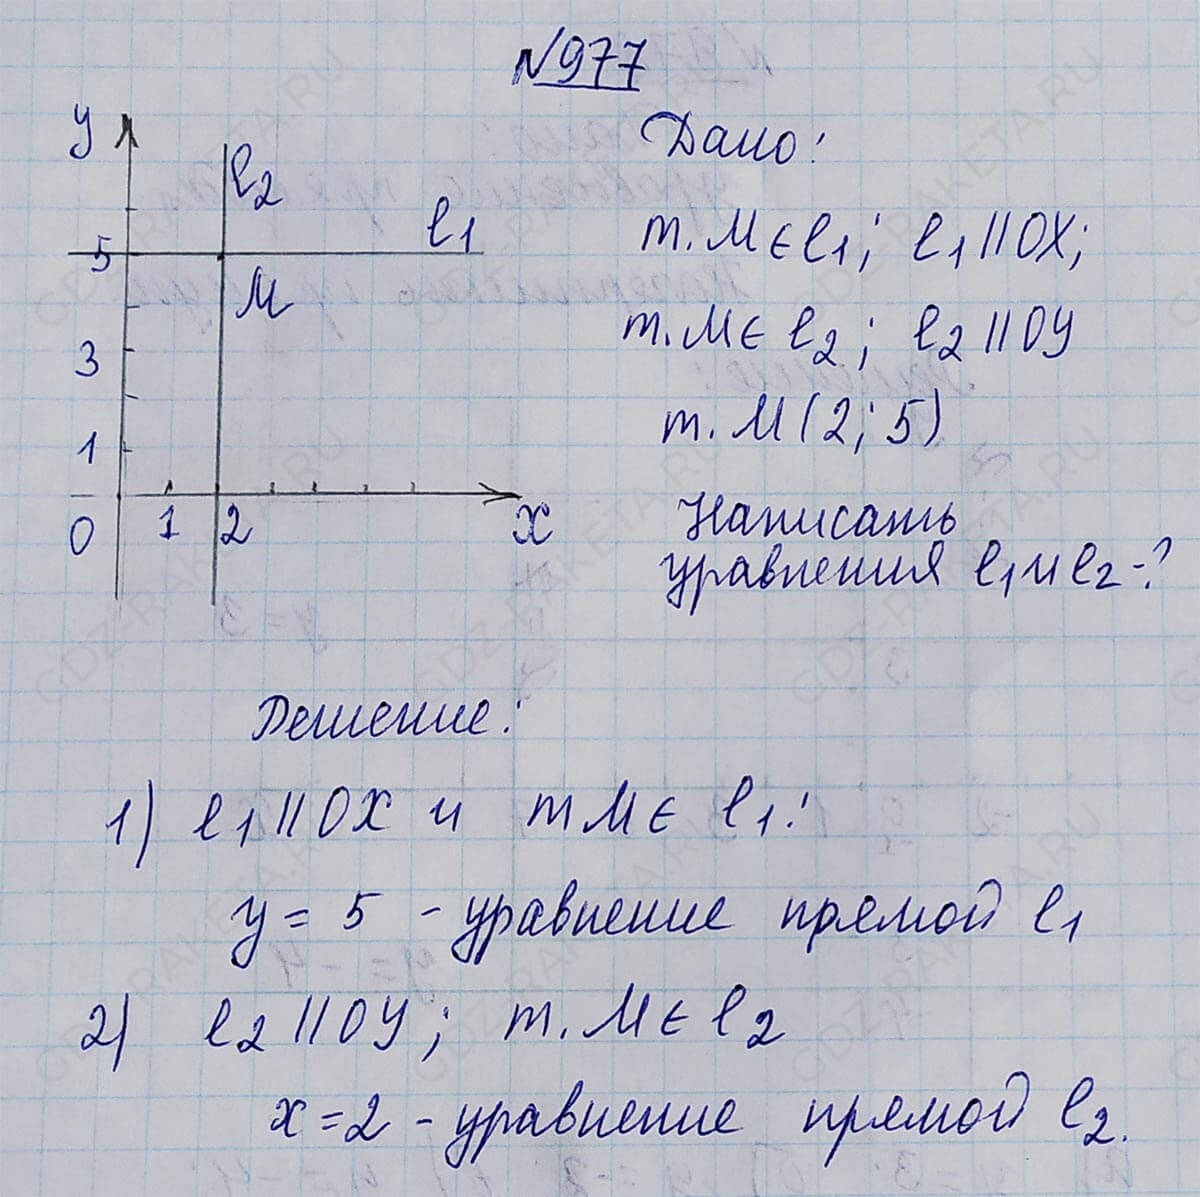 №977
y
l2
l1
5
M
3
1
0 1 2 x
Дано:
т. M ∈ l1; l1 || OX;
т. M ∈ l2; l2 || OY
т. M (2; 5)
Написать
уравнения l1 и l2 -?
Решение:
1) l1 || OX и т M ∈ l1:
y = 5 - уравнение прямой l1
2) l2 || OY; т. M ∈ l2
x = 2 - уравнение прямой l2.
GDZ-RAKETA.RU